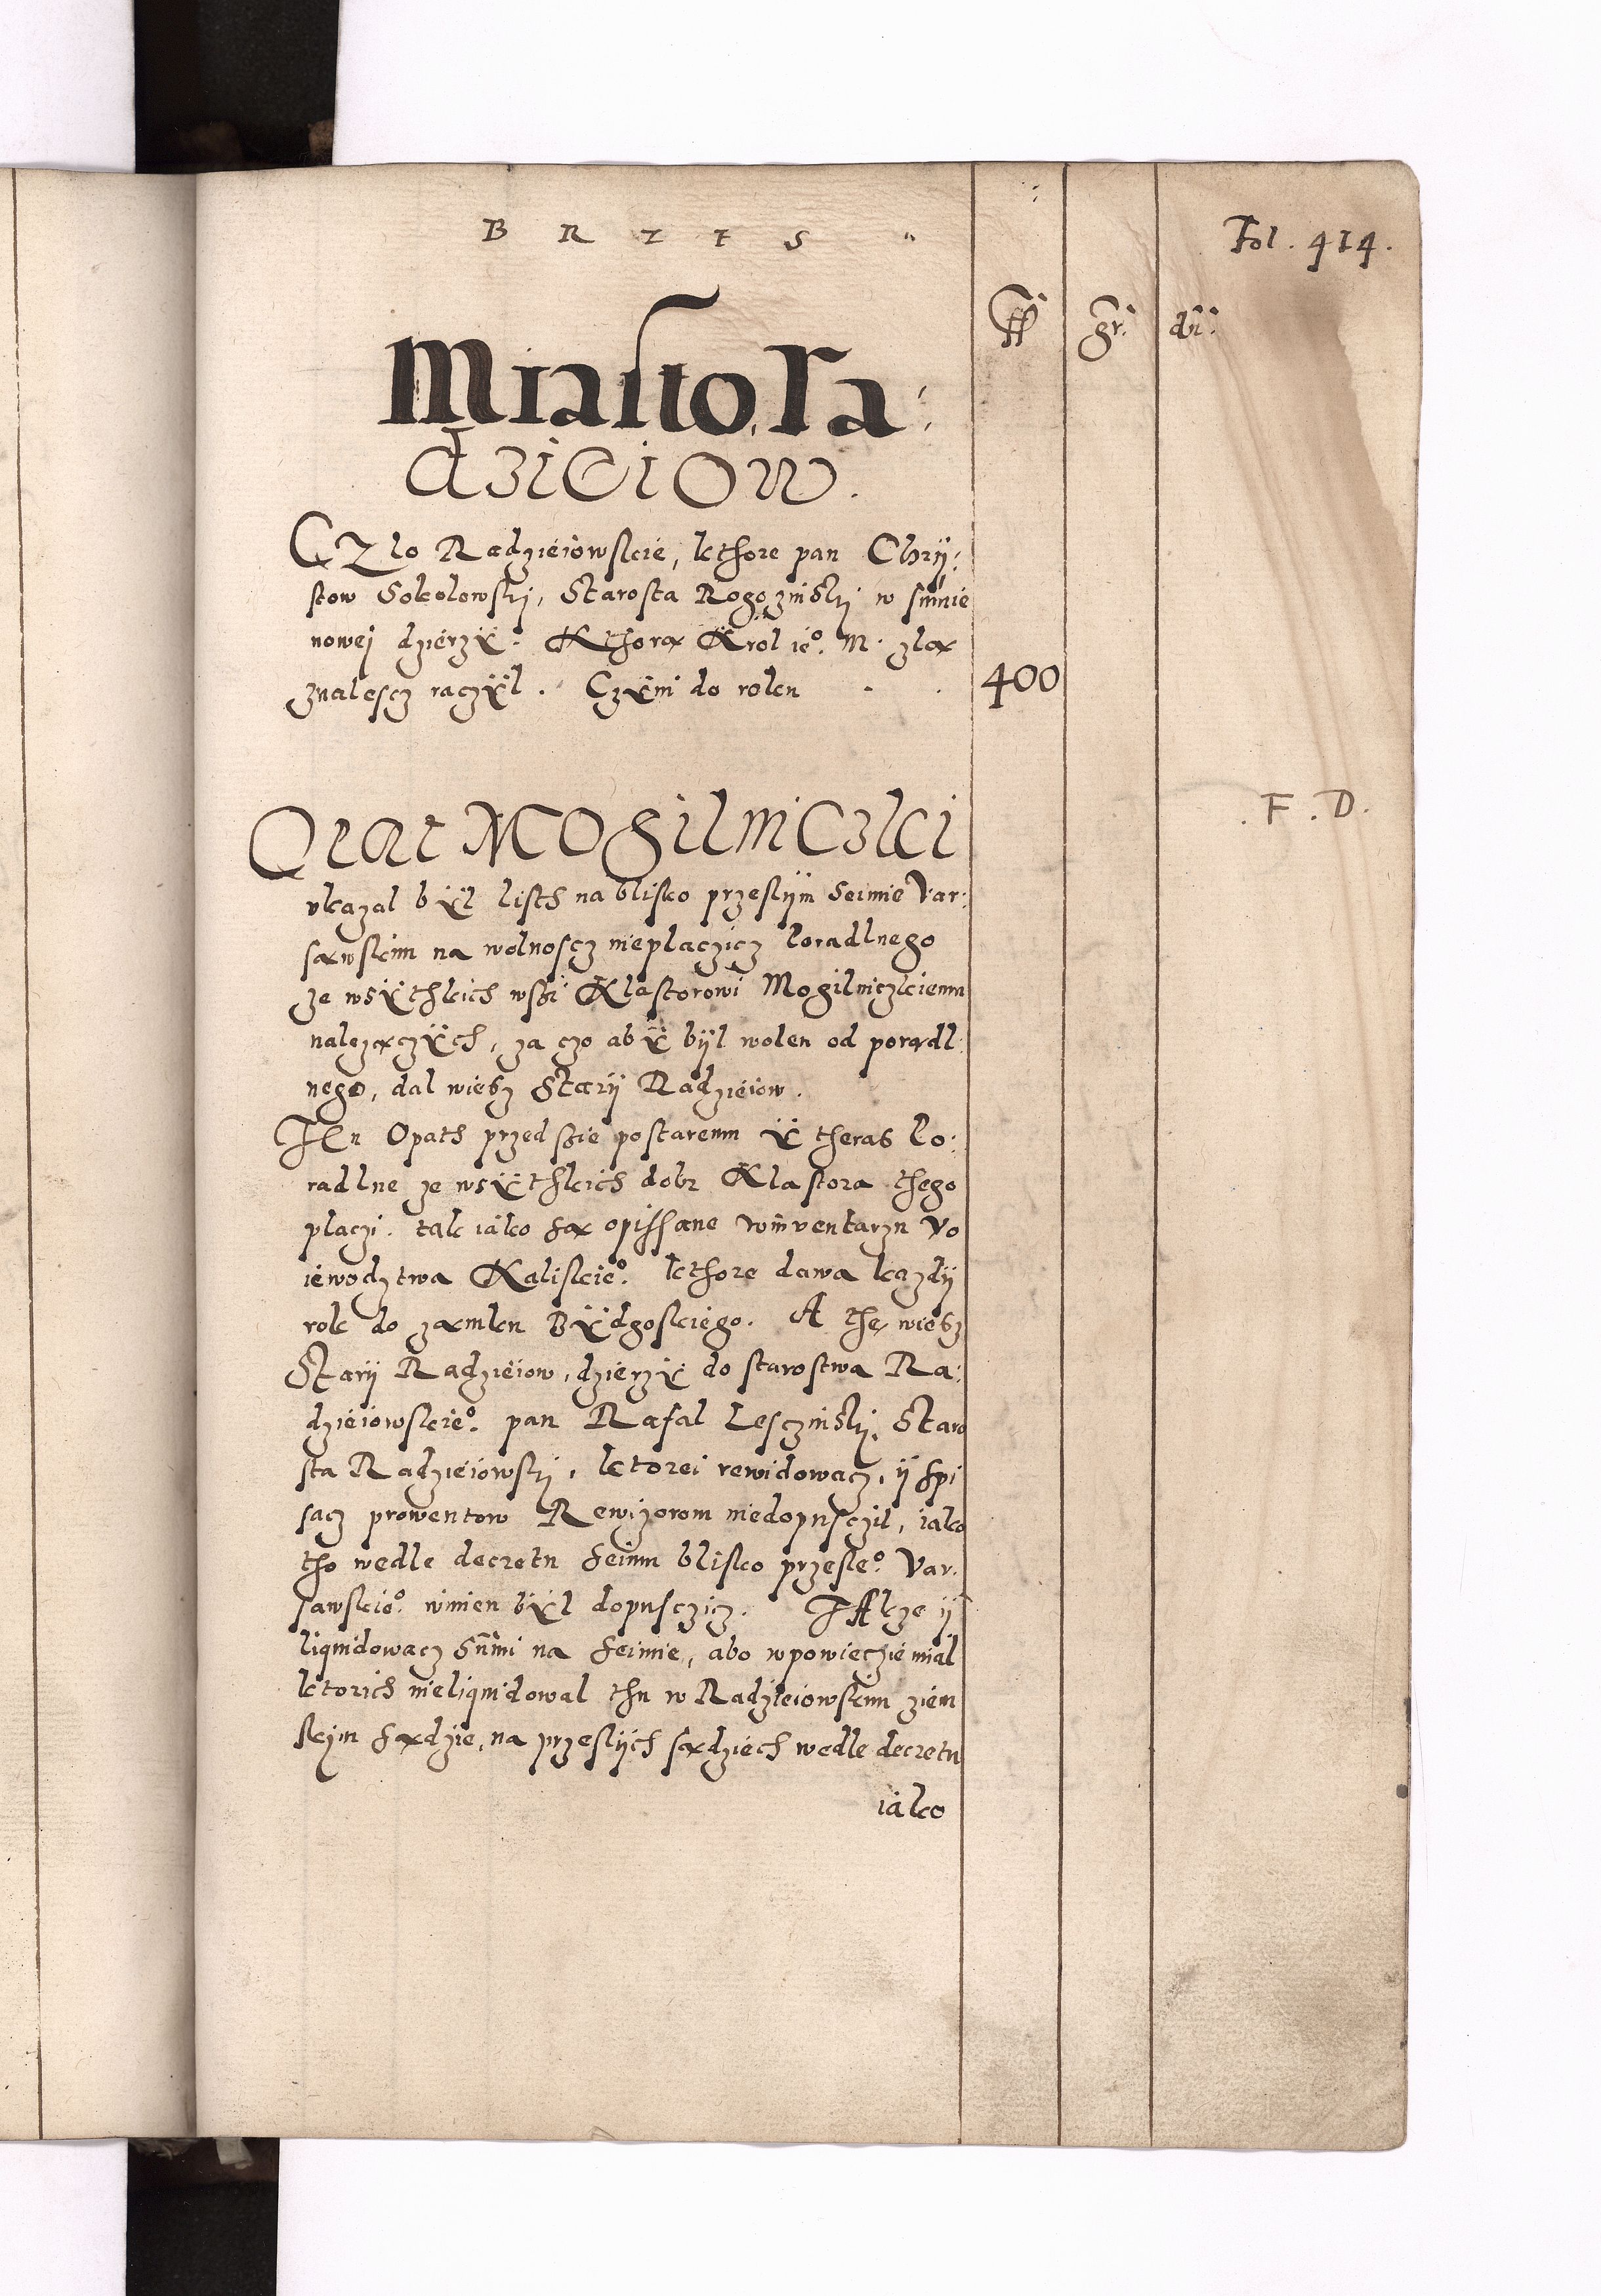 B R Z E S "
Fol. 414.
ff gr. dń:
Miasto Ra:
dzieiow.
CZlo Radzieiowskie, kthore pan Chrÿ:
stow Sokolowski, Starosta Rogozinski w sum̃ie
nowej dzierzÿ. Kthorą Krol ieº. M. zlą
znalescz raczÿl. Czÿni do roku
400
OPat Mogilniczki
. F . D .
vkazal bÿl listh na blisko przeslÿm Seimie Var:
sawskim na wolnoscz nieplaczicz Poradlnego
ze wsÿthkich wsi Klastorowi Mogilniczkiemu
nalezączÿch, za czo abÿ bÿl wolen od poradl:
nego, dal wiesz Starÿ Radzieiow.
TEn Opath przed sie postaremu ÿ theras Po:
radlne ze wsÿthkich dobr Klastora thego
placzi. tak iako są opissane w inventarzu Vo
iewodztwa Kaliskieº. kthore dawa kazdÿ
rok do zamku Bÿdgoskiego. A thę wiesz
Starÿ Radzieiow, dzierzÿ do starostwa Ra:
dzieiowskieº. pan Rafal Lesczinski, Staro
sta Radzieiowski, ktorei rewidowacz, ÿ spi
sacz prowentow Rewizorom niedopusczil, iako
tho wedle decretu seimu blisko przesleº. Var.
sawskieº. winien bÿl dopusczicz. TAkze ÿ
liquidowacz sum̃i na seimie, abo w powieczie mial
ktorich nieliquidowal thu w Radzieiowskim ziem
skim sądzie, na przeslÿch sądziech wedle decretu
iako